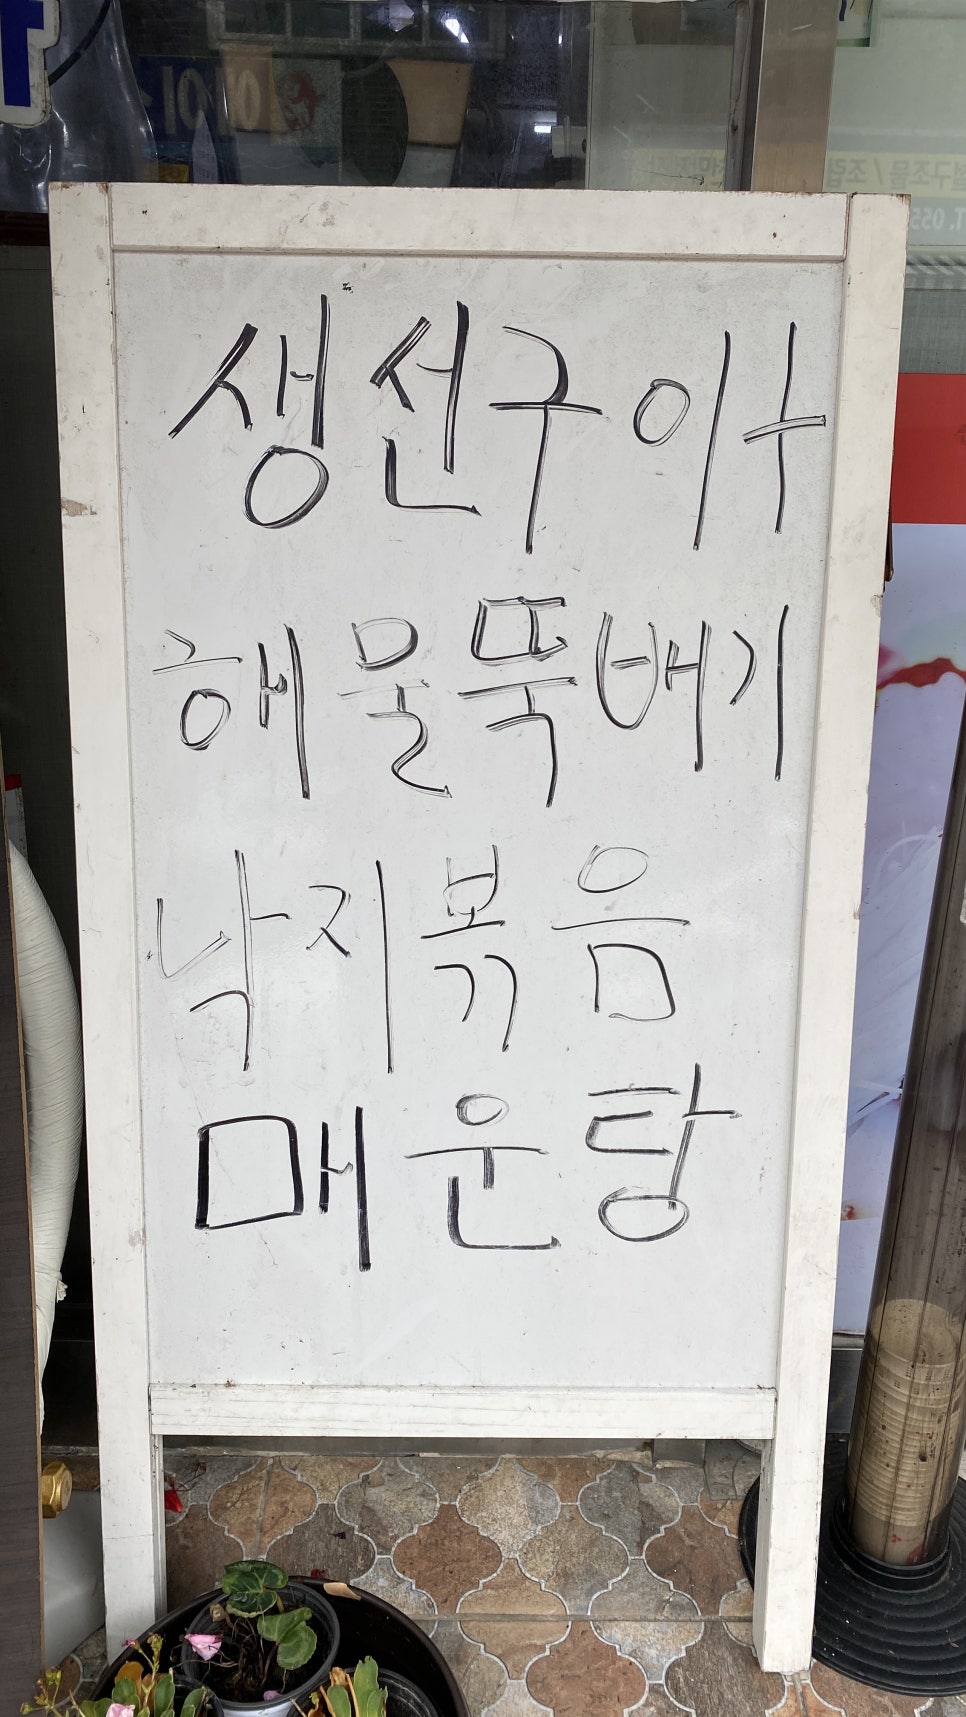 생선구이
해물뚝배기
낙지볶음
매운탕